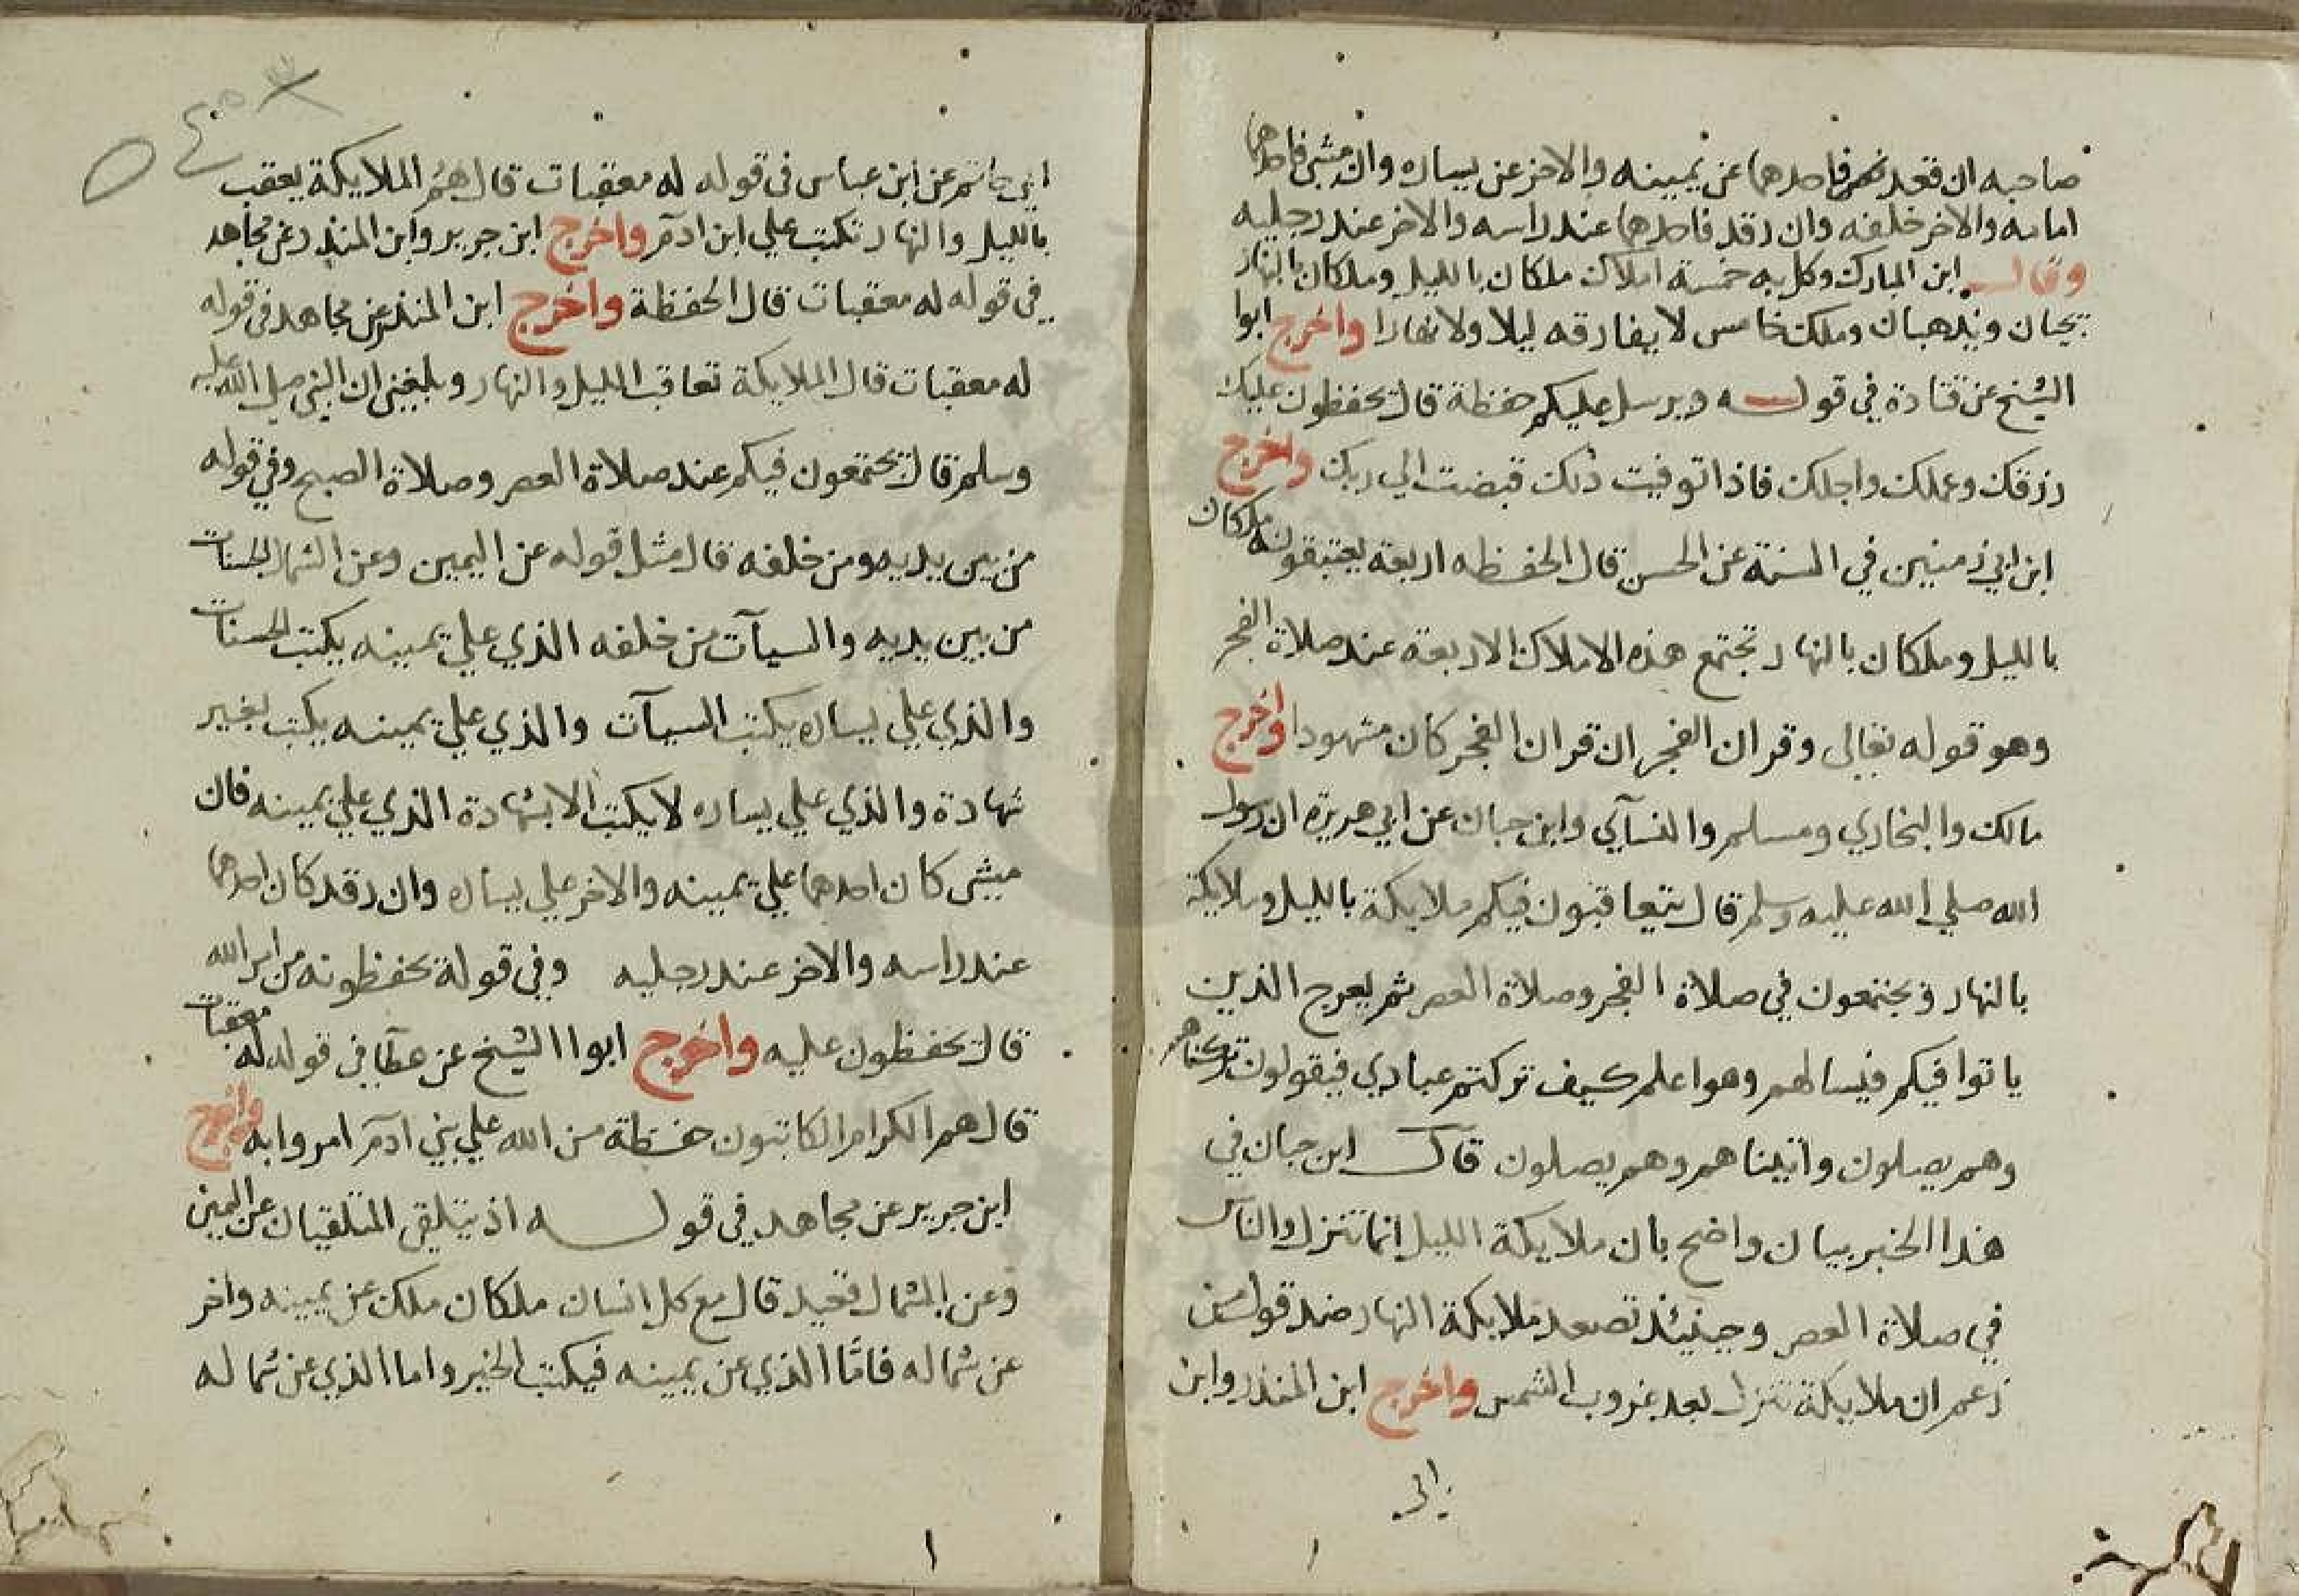 صاحبه ان قعد فاحدهما عن يمينه والاخر عن يساره وان مشي فاحدهما
امامه والاخر خلفه وان رقد فاحدهما عند راسه والاخر عند رجليه
وقال ابن المبارك وكل به خمسة املاك ملكان بالليل وملكان بالنهار
يجيان ويذهبان وملك خامس لا يفارقه ليلا ولا نهارا واخرج ابوا
الشيخ عن قتادة في قوله ويرسل عليكم حفظة قال يحفظون عليك
رزقك وعملك واجلك فاذا توفيت ذلك قبضت الي ربك واخرج
ابن ابي زمنين في السنة عن الحسن قال الحفظه اربعة يعتقبونه ملكان
بالليل وملكان بالنهار تجتمع هذه الاملاك الاربعة عند صلاة الفجر
وهو قوله تعالى وقران الفجر ان قران الفجر كان مشهودا واخرج
مالك والبخاري ومسلم والنسآئي وابن حبان عن ابي هريرة ان رسول
الله صلي الله عليه وسلم قال يتعاقبون فيكم ملايكة بالليل وملايكة
بالنهار ويجتمعون في صلاة الفجر وصلاة العصر ثم يعرج الذين
ياتوا فيكم فيسالهم وهوا علم كيف تركتم عبادي فيقولون تركناهم
وهم يصلون واتيناهم وهم يصلون قال ابن حبان في
هذا الخبر بيان واضح بان ملايكة الليل انما تنزل والناس
في صلاة العصر وحينيئذ تصعد ملايكة النهار ضد قول من
زعم ان ملايكة تنزل بعد غروب الشمس واخرج ابن المنذر وابن
ابي
ابي حاتم عن ابن عباس في قوله له معقبات قال هم الملايكة يعقب
بالليل والنهار تكتب علي ابن ادم واخرج ابن جرير وابن المنذر عن مجاهد
في قوله له معقبات قال الحفظة واخرج ابن المنذر عن مجاهد في قوله
له معقبات قال الملايكة تعاقب الليل والنهار وبلغني ان النبي صلي الله عليه
وسلم قال يجتمعون فيكم عند صلاة العصر وصلاة الصبح وفي قوله
من بين يديه ومن خلفه قال مثل قوله عن اليمين وعن الشمال الحسنات
من بين يديه والسيآت من خلفه الذي علي يمينه يكتب الحسنات
والذي علي يساره يكتب السيآت والذي علي يمينه يكتب بغير
شهادة والذي علي يساره لا يكتب الا بشهادة الذي علي يمينه فان
مشى كان احدهما علي يمينه والاخر علي يساره وان رقد كان احدهما
عند راسه والاخر عند رجليه وفي قوله يحفظونه من امر الله
قال يحفظون عليه واخرج ابوا الشيخ عن عطآ في قوله له معقبات
قال هم الكرام الكاتبون حفظة من الله علي بني ادم امروا به واخرج
ابن جرير عن مجاهد في قوله اذ يتلقى المتلقيان عن اليمين
وعن الشمال قعيد قال مع كل انسان ملكان ملك عن يمينه واخر
عن شماله فامّا الذي عن يمينه فيكتب الخير واما الذي عن شماله